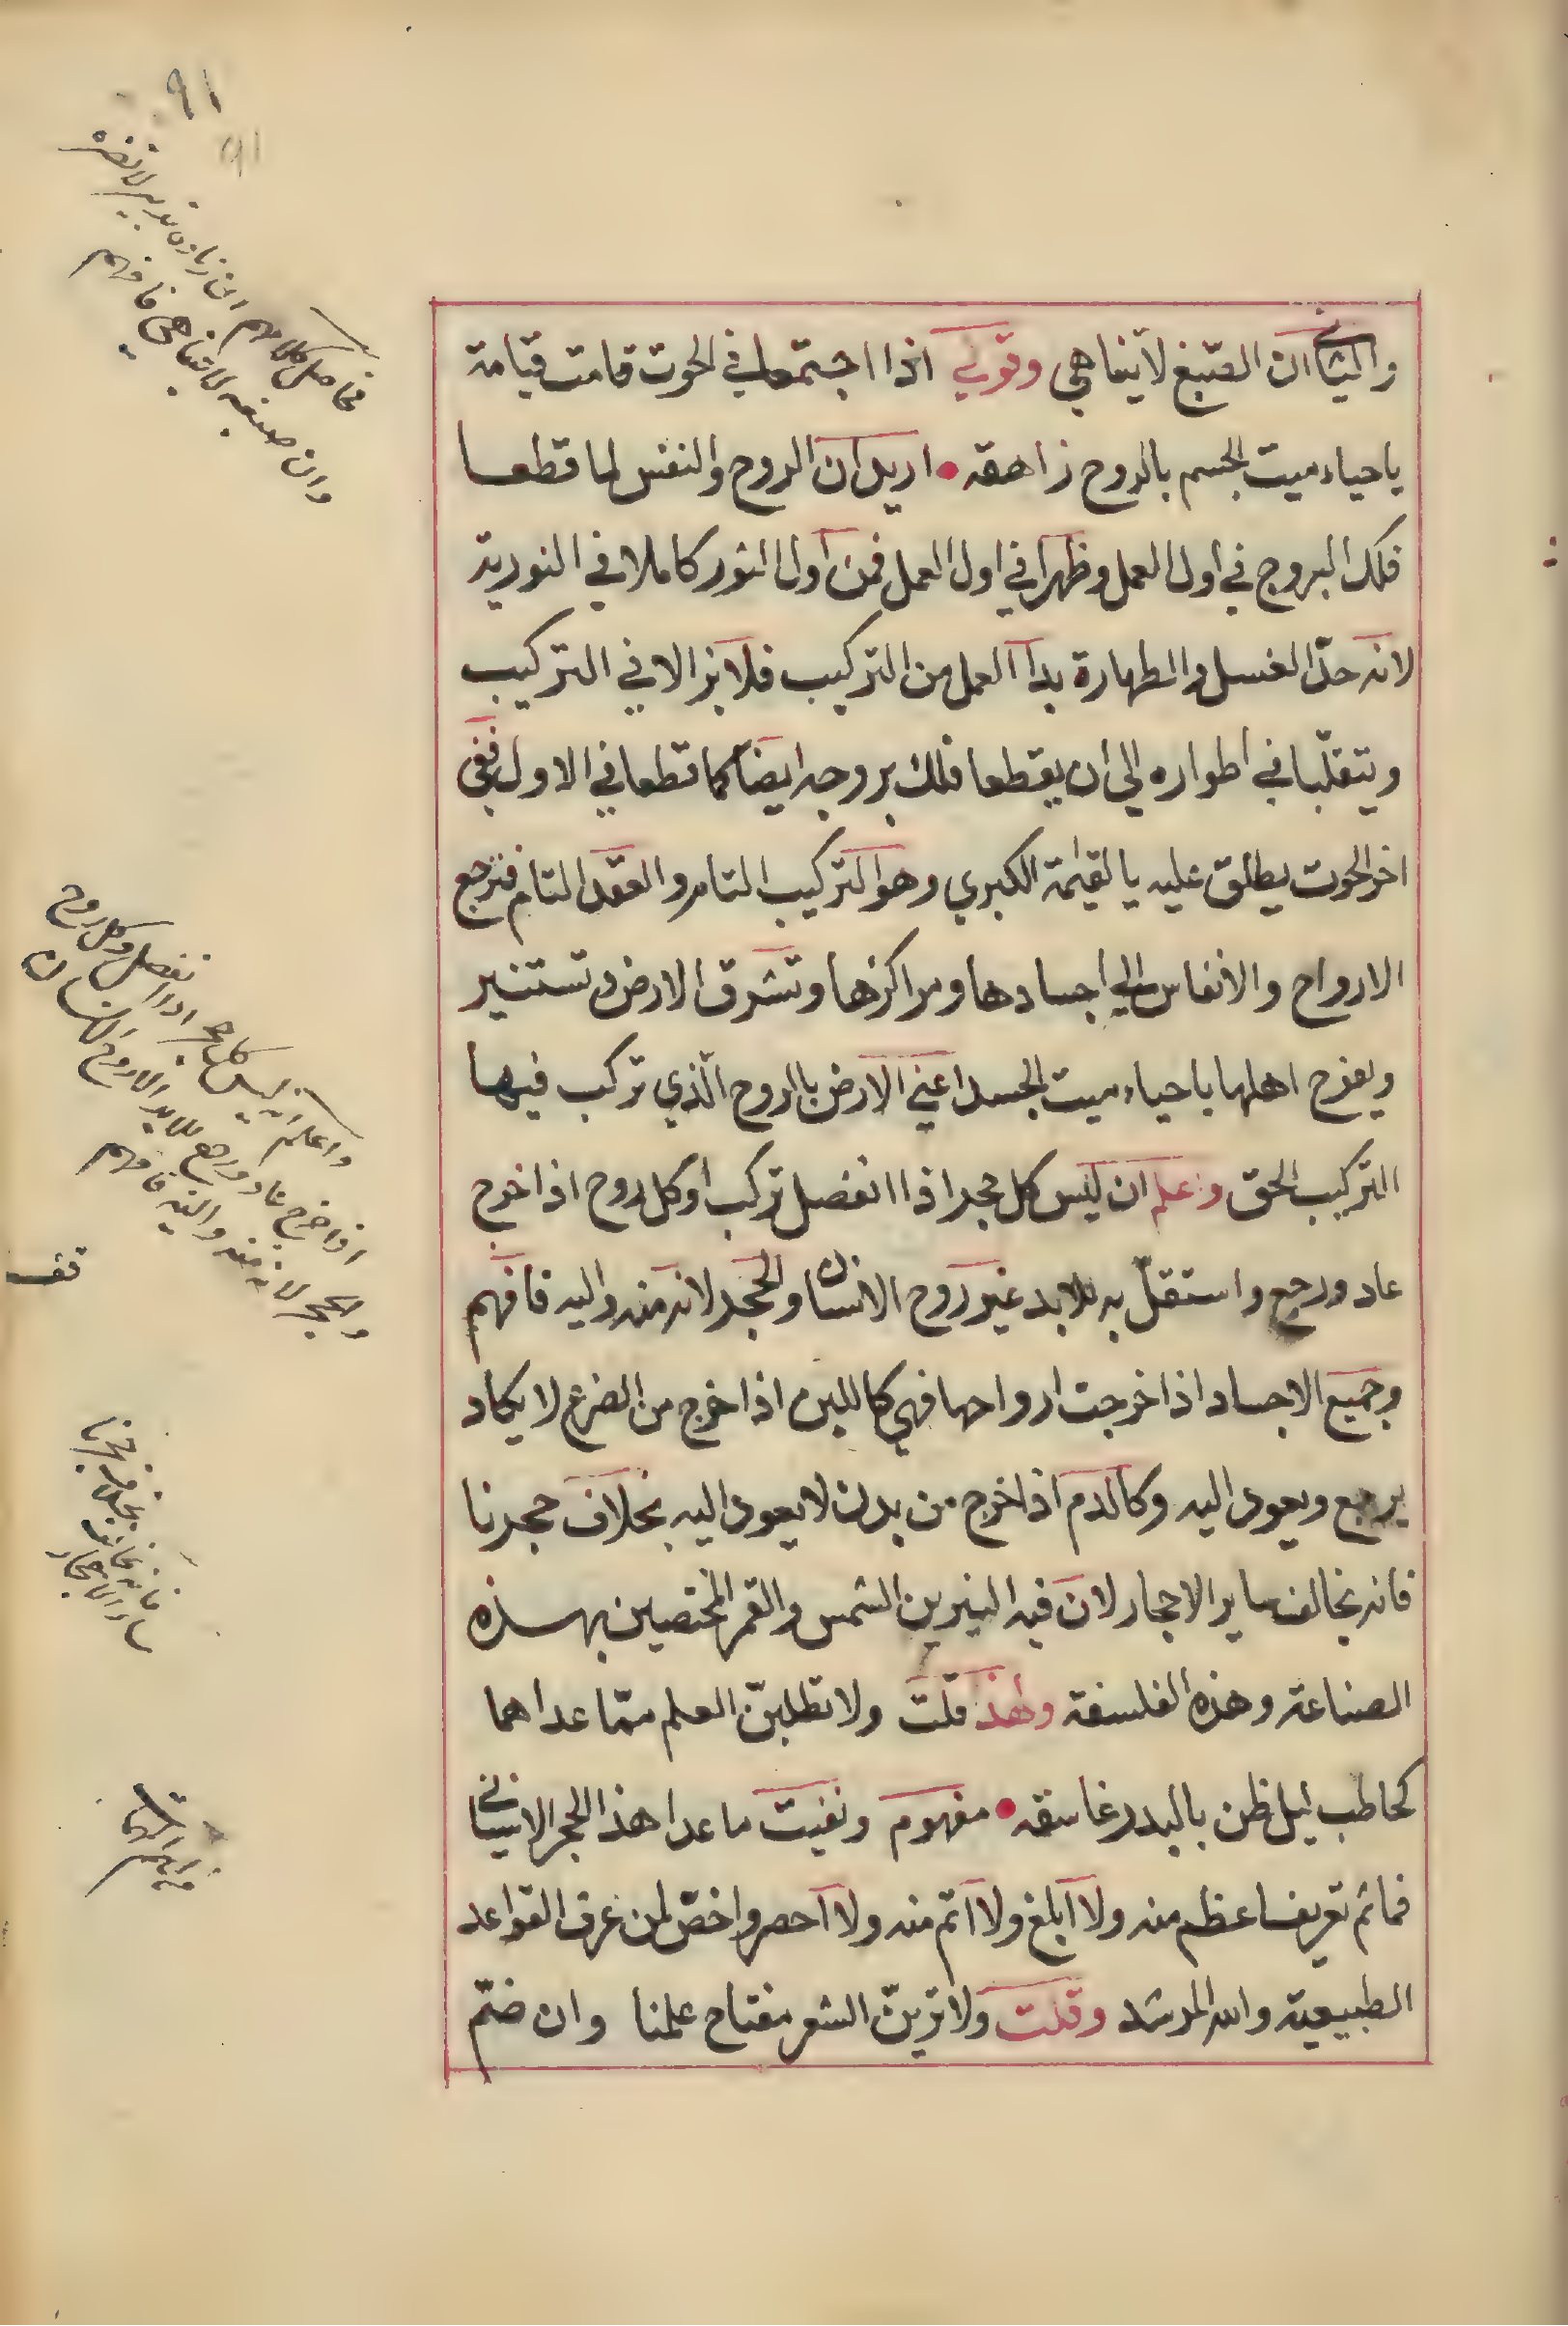 والثاني ان الصّبغ لا يتناهي وقولي اذا اجتمعا في الحوت قامت قيامة
باحياء ميت الجسم بالروح زاهقه • اريد ان الروح والنفس لما قطعا
فلك البروج في اول العمل وظهرا في اول العمل فمن اول الثور كاملا في النورية
لانه حدّ الغسل والطهارة بدا العمل من التركيب فلا يزالا في التركيب
ويتقلّبا في اطواره الي ان يقطعا فلك بروجه ايضا كما قطعا في الاول ففي
اخر الحوت يطلق عليه بالقيمة الكبري وهو التركيب التام والعقد التام فترجع
الارواح والانفاس الي اجسادها ومراكزها وتشرق الارض وتستنير
ويفرح اهلها باحياء ميت الجسد اعني الارض بالروح الّذي تركب فيها
التركيب الحق واعلم ان ليس كل حجر اذا انفصل تركب او كل روح اذا خرج
عاد ورجع واستقلّ به للابد غير روح الانسان والحجر لانه منه واليه فافهم
وجميع الاجساد اذا خرجت ارواحها فهي كاللبن اذا خرج من الضرع لا يكاد
يرجع ويعود اليه وكالدم اذا خرج من بدن لا يعود اليه بخلاف حجرنا
فانه يخالف ساير الاحجار لان فيه النيرين الشمس والقمر المختصين بهذه
الصناعة وهذه الفلسفة ولهذا قلت ولا تطلبنّ العلم ممّا عداهما
كحاطب ليل ظن بالبدر غاسقه • مفهوم ونفيت ما عدا هذا الحجر الانساني
فماثم تعريف اعظم منه ولا ابلغ ولا اتم منه ولا احصر واخصّ لمن عرف القواعد
الطبيعية والله المرشد وقلت ولا ترينّ الشعر مفتاح علمنا وان ضمّ
٩١
٩١
فحاصل كلامهم ان
وان صبغه لا يتناهي فافهم
واعلم ان ليس كل حجر اذا انفصل وكل روح
اذا خرج عاد ورجع للابد الا روح الانسان
والحجر لانه منه واليه فافهم
قف
بخلاف حجرنا
فانه يخالف
ساير الاحجار